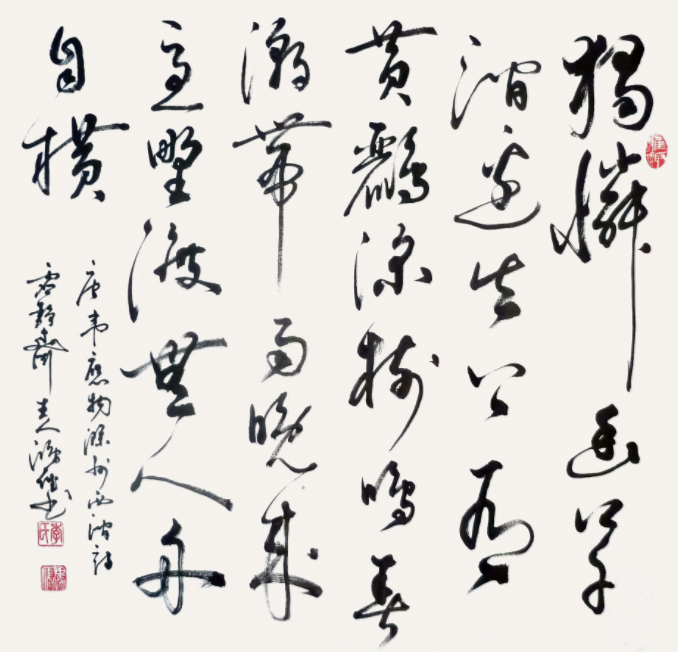 獨憐幽草
澗邊生上有
黃鸝深樹鳴春
潮帶雨晚來
急野渡無人舟
自橫
唐韋應物滁州西澗詩
靜齋主人書